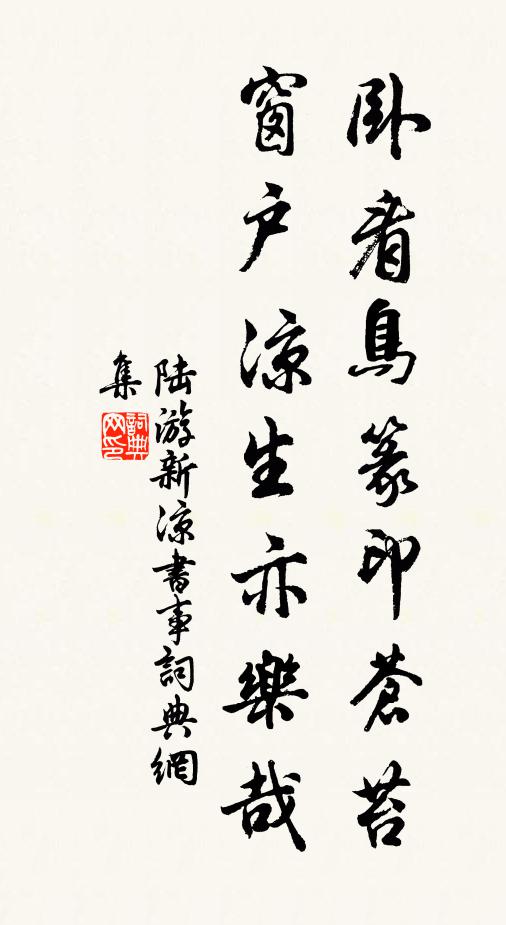 卧看鳥篆印蒼苔
窗户涼生亦樂哉
陸游新涼書事詞典網
集
詞典
网印